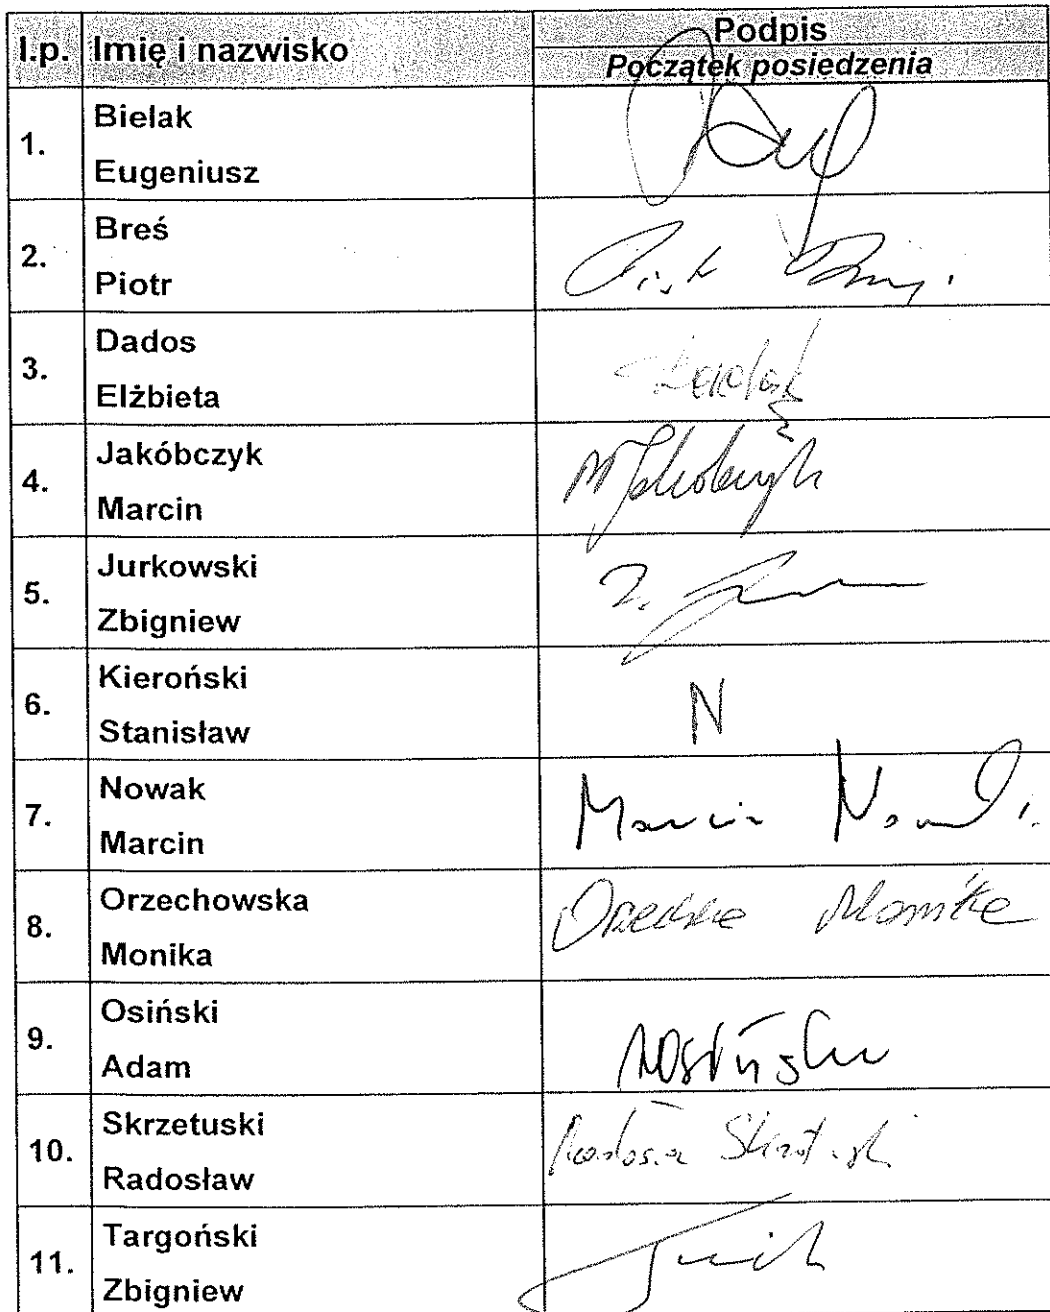 l.p. Imię i nazwisko Podpis
Początek posiedzenia
1. Bielak
Eugeniusz
2. Breś
Piotr
3. Dados
Elżbieta
4. Jakóbczyk
Marcin
M Jakóbczyk
5. Jurkowski
Zbigniew
Z.
6. Kieroński
Stanisław
N
7. Nowak
Marcin
Marcin Nowak
8. Orzechowska
Monika
Monika
9. Osiński
Adam
AOsiński
10. Skrzetuski
Radosław
Skrzetuski
11. Targoński
Zbigniew